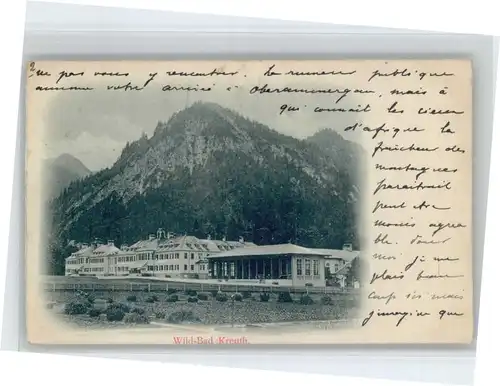 que pas vous y rencontrer. La rumeur publique
annonce votre arrivée à Oberammergau, mais à
qui connait les cieux
d'afrique la
fraicheur des
montagnes
paraitrait
peut être
moins agréa
ble. Pour
moi je me
plais beau
coup ici mais
j'imagine que
Wild-Bad Kreuth.